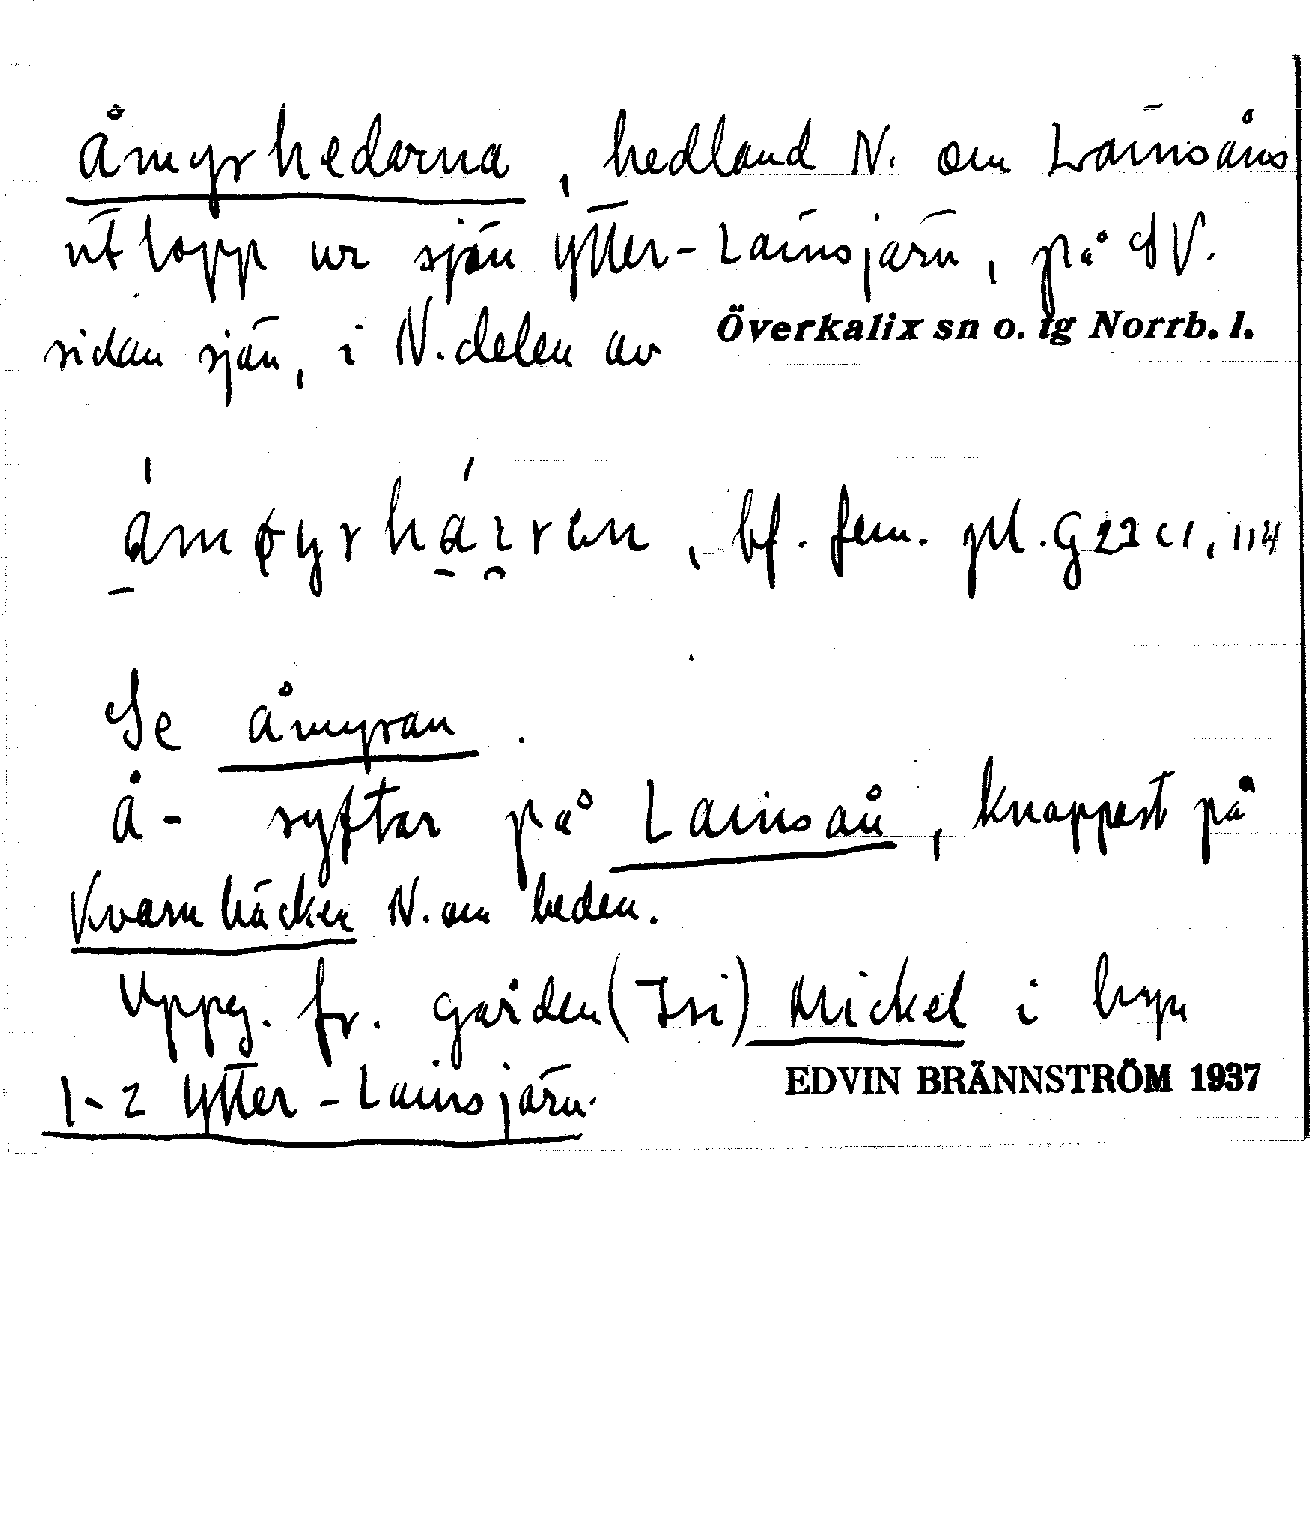 Åmyrhedarna, hedland N. om Lainsåns
utlopp ur sjön Ytter-Lainsjärv, på SV.
sidan sjön, i N.delen av Överkalix sn o. tg Norrb. l.
bf. fem. pl.
Se Åmyran.
Å- syftar på Lainsån, knappast på
Kvarnbäcken N. om heden.
Uppg. fr. gården (Isi) Mickel i byn
1-2 Ytter-Lainsjärv. EDVIN BRÄNNSTRÖM 1937